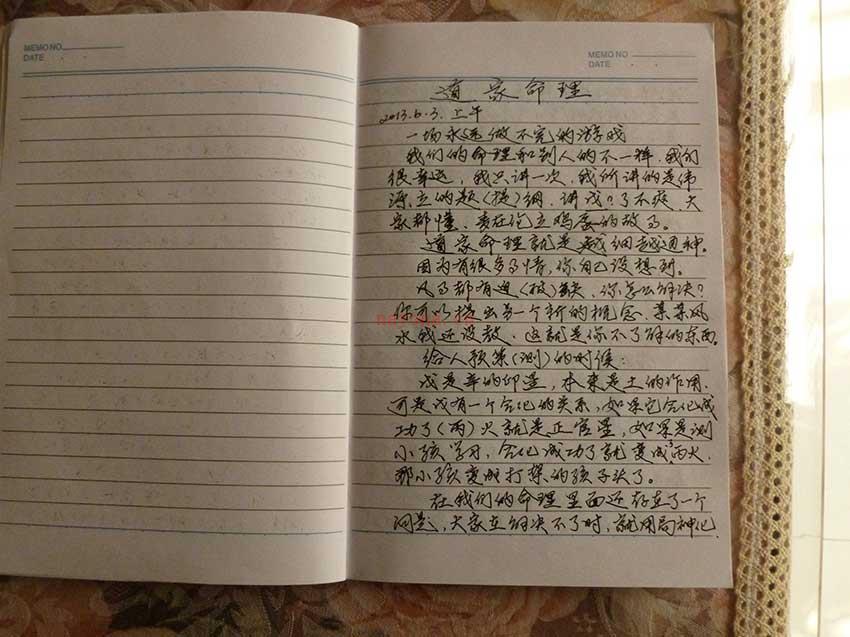 MEMO NO.
DATE · ·
MEMO NO.
DATE · ·
道家命理
2013.6.3.上午
一场永远做不完的游戏
我们的命理和别人的不一样,我们
很幸运,我只讲一次,我所讲的是伟
立的题(提)纲,讲戊?了不爽,大
家都懂,责在伦立鸡康的故了。
道家命理就是越细越通神。
因为有很多事情,你自己没想到。
凡事都有迫(破)缺,你怎么解决?
你可以提出另一个新的概念,某某风
水我还没教,这就是你不了解的东西。
给人预策(测)的时候:
戊是辛的印星,本来是土的作用,
可是戊有一个合化的关系,如果它合化成
功了(丙)火就是正官星,如果是测
小孩学习,合化成功了就变成丙火,
那小孩变成打架的孩子头了。
在我们的命理里面还存在了一个
问题,大家在解决不了时,就用局神化